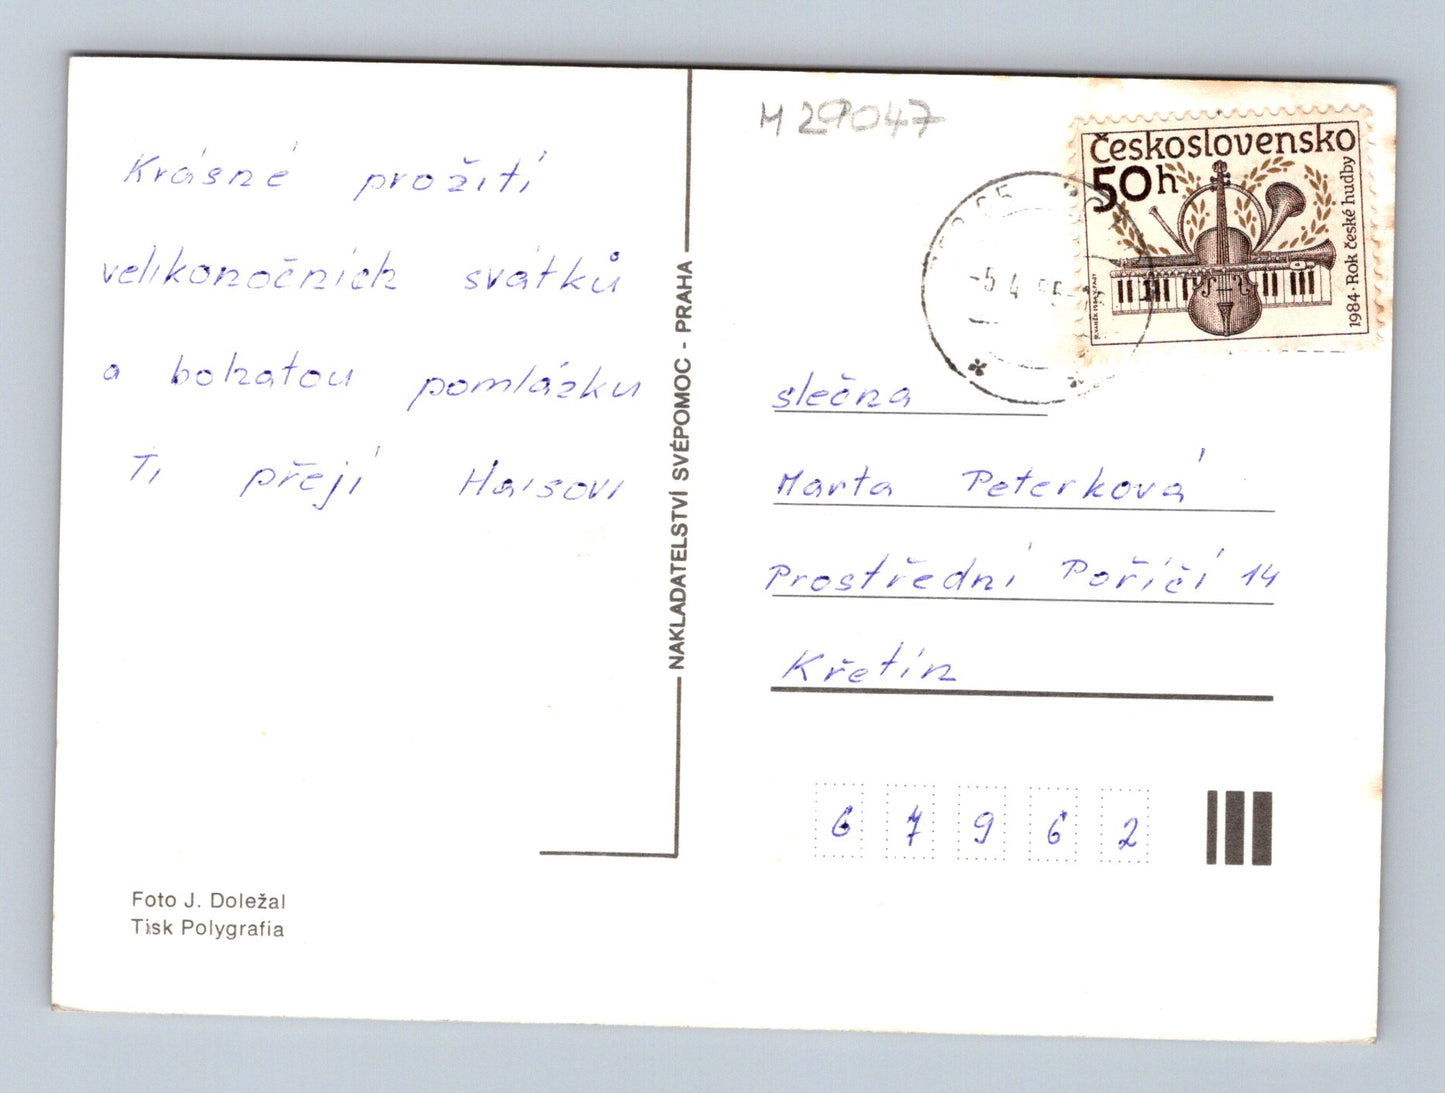 Krásné prožití
velikonočních svátků
a bohatou pomlázku
Ti přejí Haisovi
Foto J. Doležal
Tisk Polygrafia
NAKLADATELSTVÍ SVÉPOMOC - PRAHA
M 29047
Československo
50h
1984 · Rok české hudby
-5. 4.
slečna
Marta Peterková
Prostřední Poříčí 14
Křetín
67962